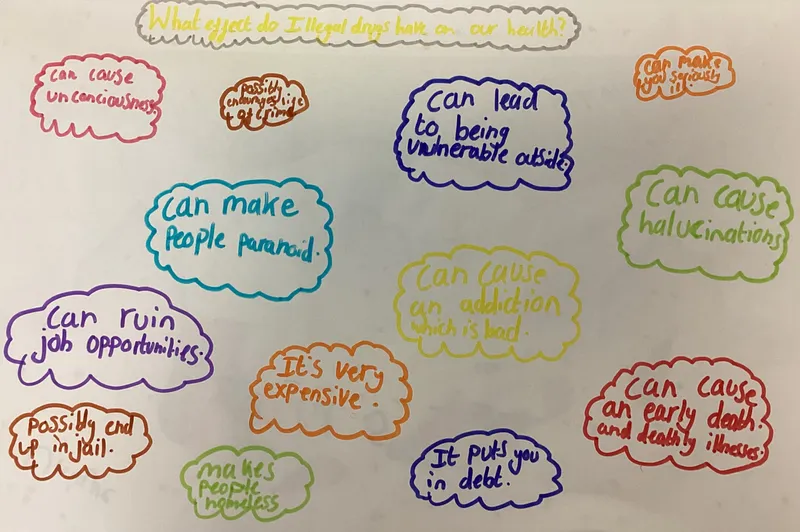 What effect do Illegal drugs have on our health?
can cause
unconciousness
Possibly
life
of crime
can lead
to being
vulnerable outside.
can make
you seriously
ill.
can make
people paranoid.
Can cause
halucinations
Can cause
an addiction
which is bad.
can ruin
job opportunities.
It's very
expensive.
Can cause
an early death.
and deathly illnesses.
possibly end
up in jail.
makes
people
homeless
It puts you
in debt.